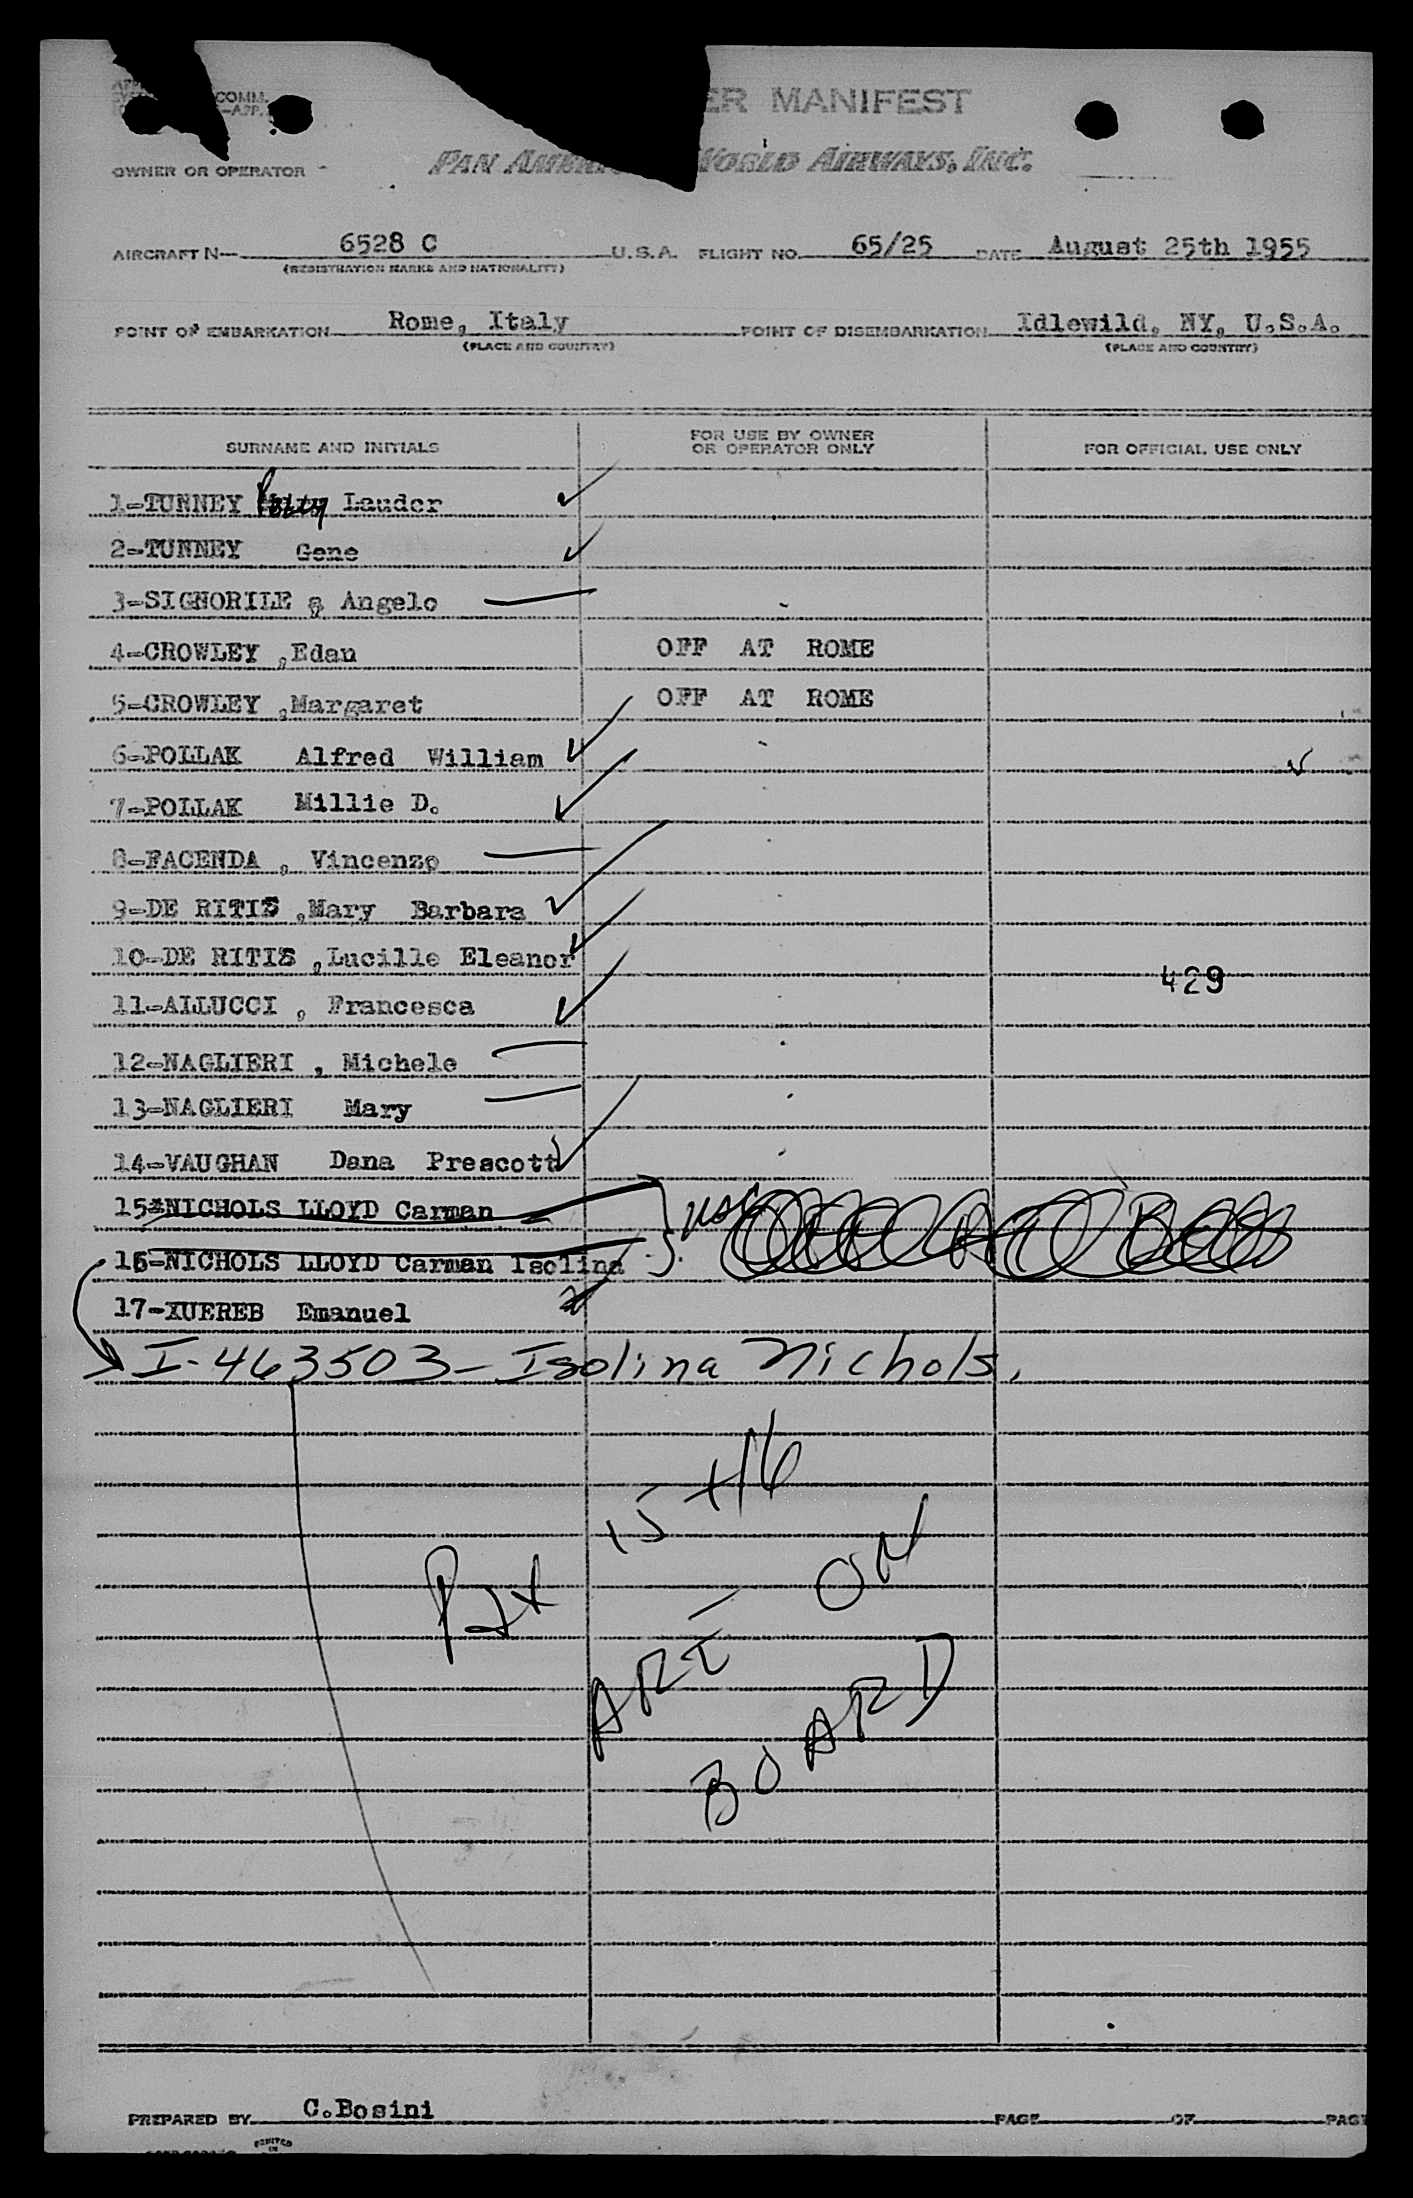 COMM.
ER MANIFEST
OWNER OR OPERATOR PAN AMERIC WORLD AIRWAYS, INC.
AIRCRAFT N— 6528 C U.S.A. FLIGHT NO. 65/25 DATE August 25th 1955
(REGISTRATION MARKS AND NATIONALITY)
POINT OF EMBARKATION Rome, Italy POINT OF DISEMBARKATION Idlewild, NY, U.S.A.
(PLACE AND COUNTRY) (PLACE AND COUNTRY)
SURNAME AND INITIALS FOR USE BY OWNER OR OPERATOR ONLY FOR OFFICIAL USE ONLY
1-TUNNEY Polly Lauder
2-TUNNEY Gene
3-SIGNORILE , Angelo
4-CROWLEY ,Edan OFF AT ROME
5-CROWLEY ,Margaret OFF AT ROME
6-POLLAK Alfred William
7-POLLAK Millie D.
8-FACENDA , Vincenzo
9-DE RITIS ,Mary Barbara
10-DE RITIS ,Lucille Eleanor
429
11-AILUCCI , Francesca
12-NAGLIERI , Michele
13-NAGLIERI Mary
14-VAUGHAN Dana Prescott
15-NICHOLS LLOYD Carman
16-NICHOLS LLOYD Carman Isolina
17-XUEREB Emanuel
I-463503- Isolina Nichols,
Pax 15 + 16
ARE ON
BOARD
PREPARED BY C.Bosini PAGE OF PAG
PRINTED
IN